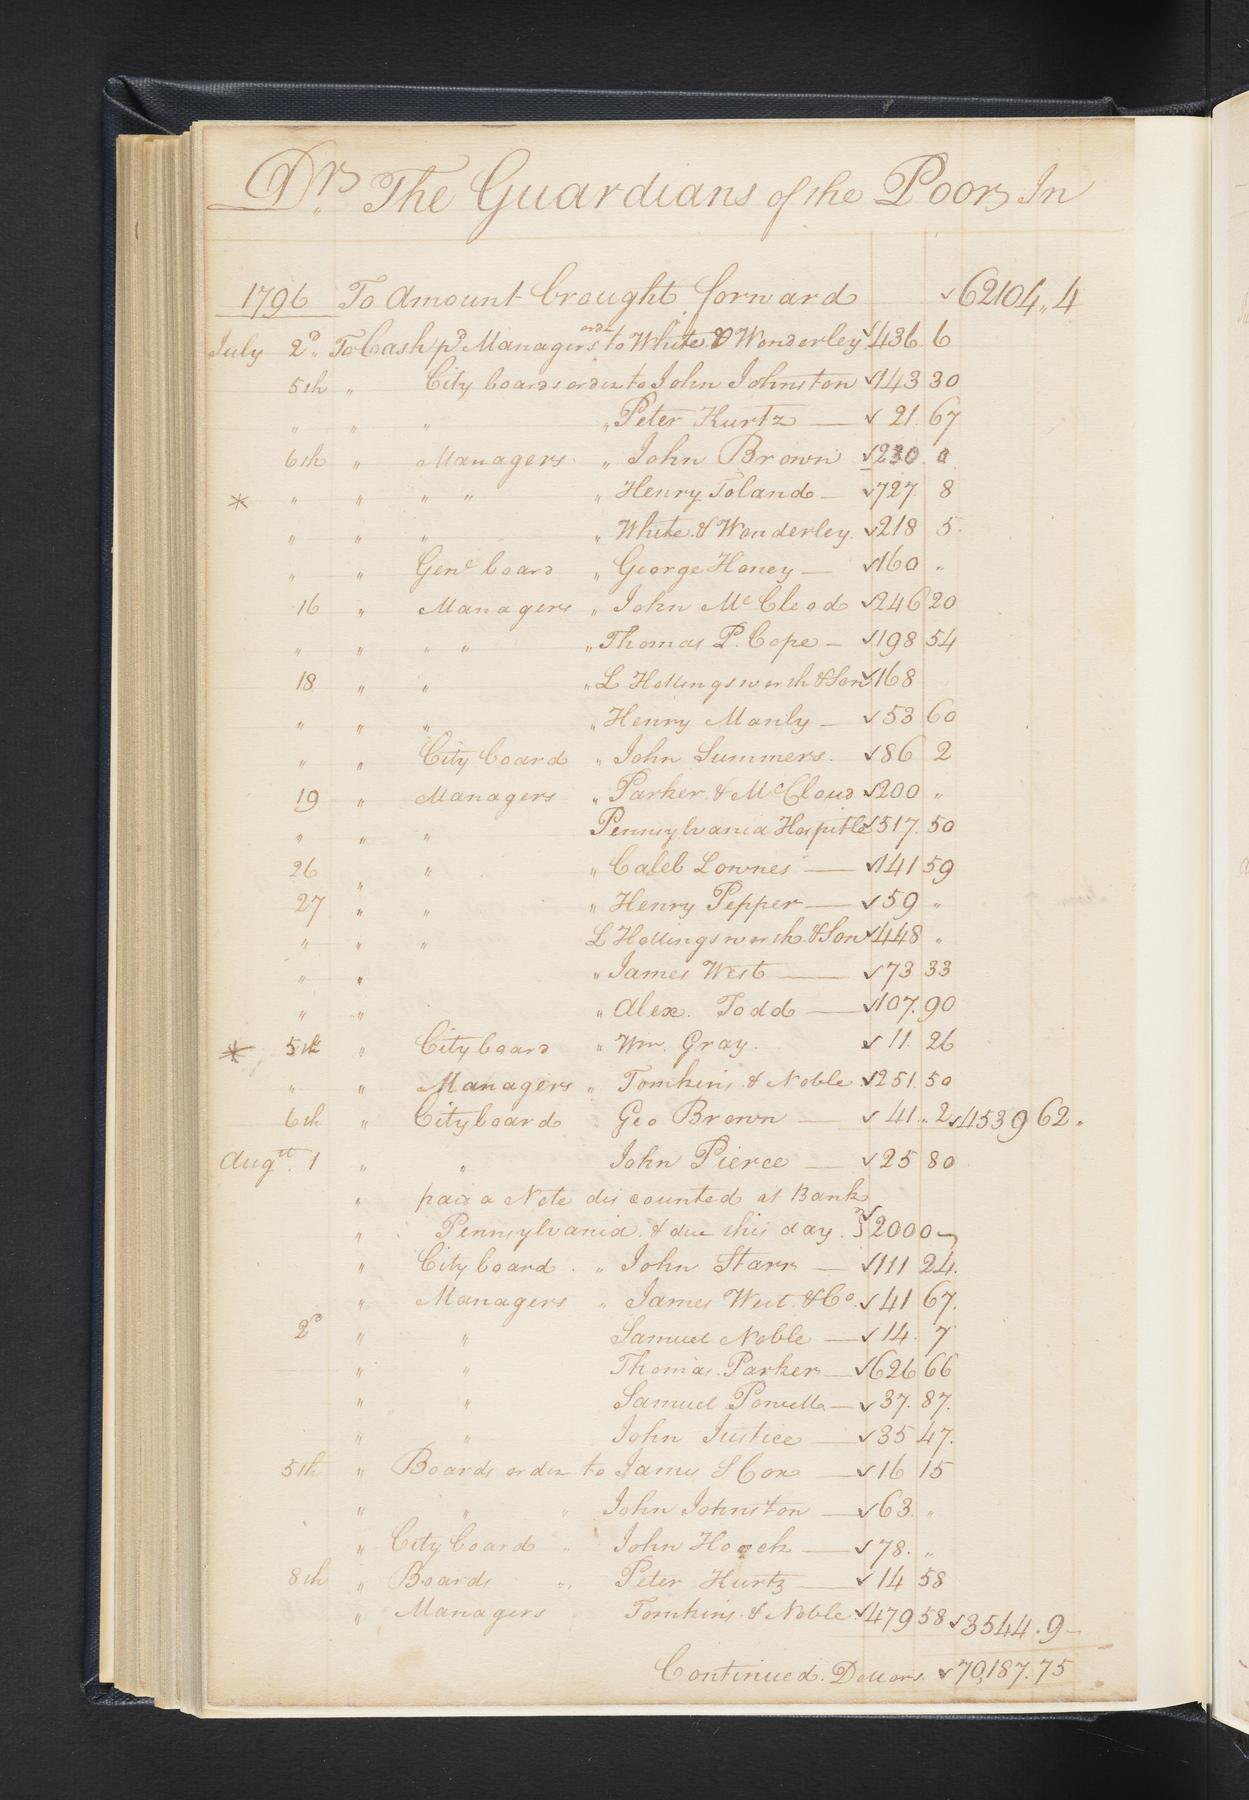 Drs The Guardians of the Poor In
1796 To Amount brought forward 62104,,4
July 2d,, To Cash pd Managers order to White & Wonderley 436 6
5th ,, City boards order to John Johnston 143 30
,, ,, ,, ,, Peter Kurtz — 21 67
6th ,, Managers ,, John Brown 230 0
* ,, ,, ,, ,, ,, Henry Toland — 727 8
,, ,, ,, ,, White & Wonderley 218 5
,, ,, Genl board ,, George Honey — 160 ,,
16 ,, Managers ,, John McCleod 246 20
,, ,, ,, ,, ,, Thomas P. Cope — 198 54
18 ,, ,, ,, L Hollingsworth & Son 168
,, ,, ,, ,, Henry Manly — 53 60
,, ,, City board ,, John Summers. 86 2
19 ,, Managers ,, Parker & McCloud 200 ,,
,, ,, ,, Pennsylvania Hospitle 517. 50
26 ,, ,, ,, Caleb Lownes — 141 59
27 ,, ,, ,, Henry Pepper — 59 ,,
,, ,, ,, L Hollingsworth & Son 448 ,,
,, ,, ,, James West — 73 33
,, ,, ,, Alex. Todd — 107. 90
* 5th ,, City board ,, Wm. Gray. 11. 26
,, ,, Managers ,, Tomkins & Noble 251. 50
6th ,, City board Geo Brown — 41 ,, 2 4539 62 ,,
Augst. 1 ,, ,, John Pierce — 25 80
,, paid a Note discounted at Bank
,, Pennsylvania & due this day. } 2000 —
,, City board ,, John Starr — 111 24.
,, Managers ,, James West & Co. 41 67.
2d ,, ,, Samuel Noble — 14. 7
,, ,, Thomas Parker — 626 66
,, ,, Samuel Powell — 37. 87.
,, ,, John Justice — 35 47.
5th ,, Boards order to James S Cox — 16 15
,, ,, ,, John Johnston — 63. ,,
,, City board ,, John Hoock — 78. ,,
8th ,, Boards ,, Peter Kurtz — 14 58
,, Managers Tomkins & Noble 479 58 3544. 9 —
Continued. Dollars. 70,187. 75